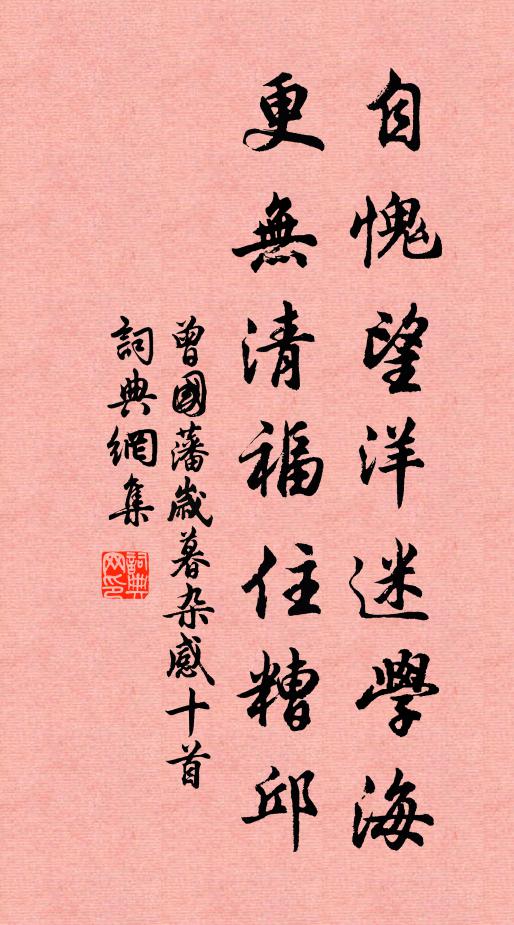 自愧望洋迷學海
更無清福住糟邱
曾國藩歲暮杂感十首
詞典網集
詞典网印